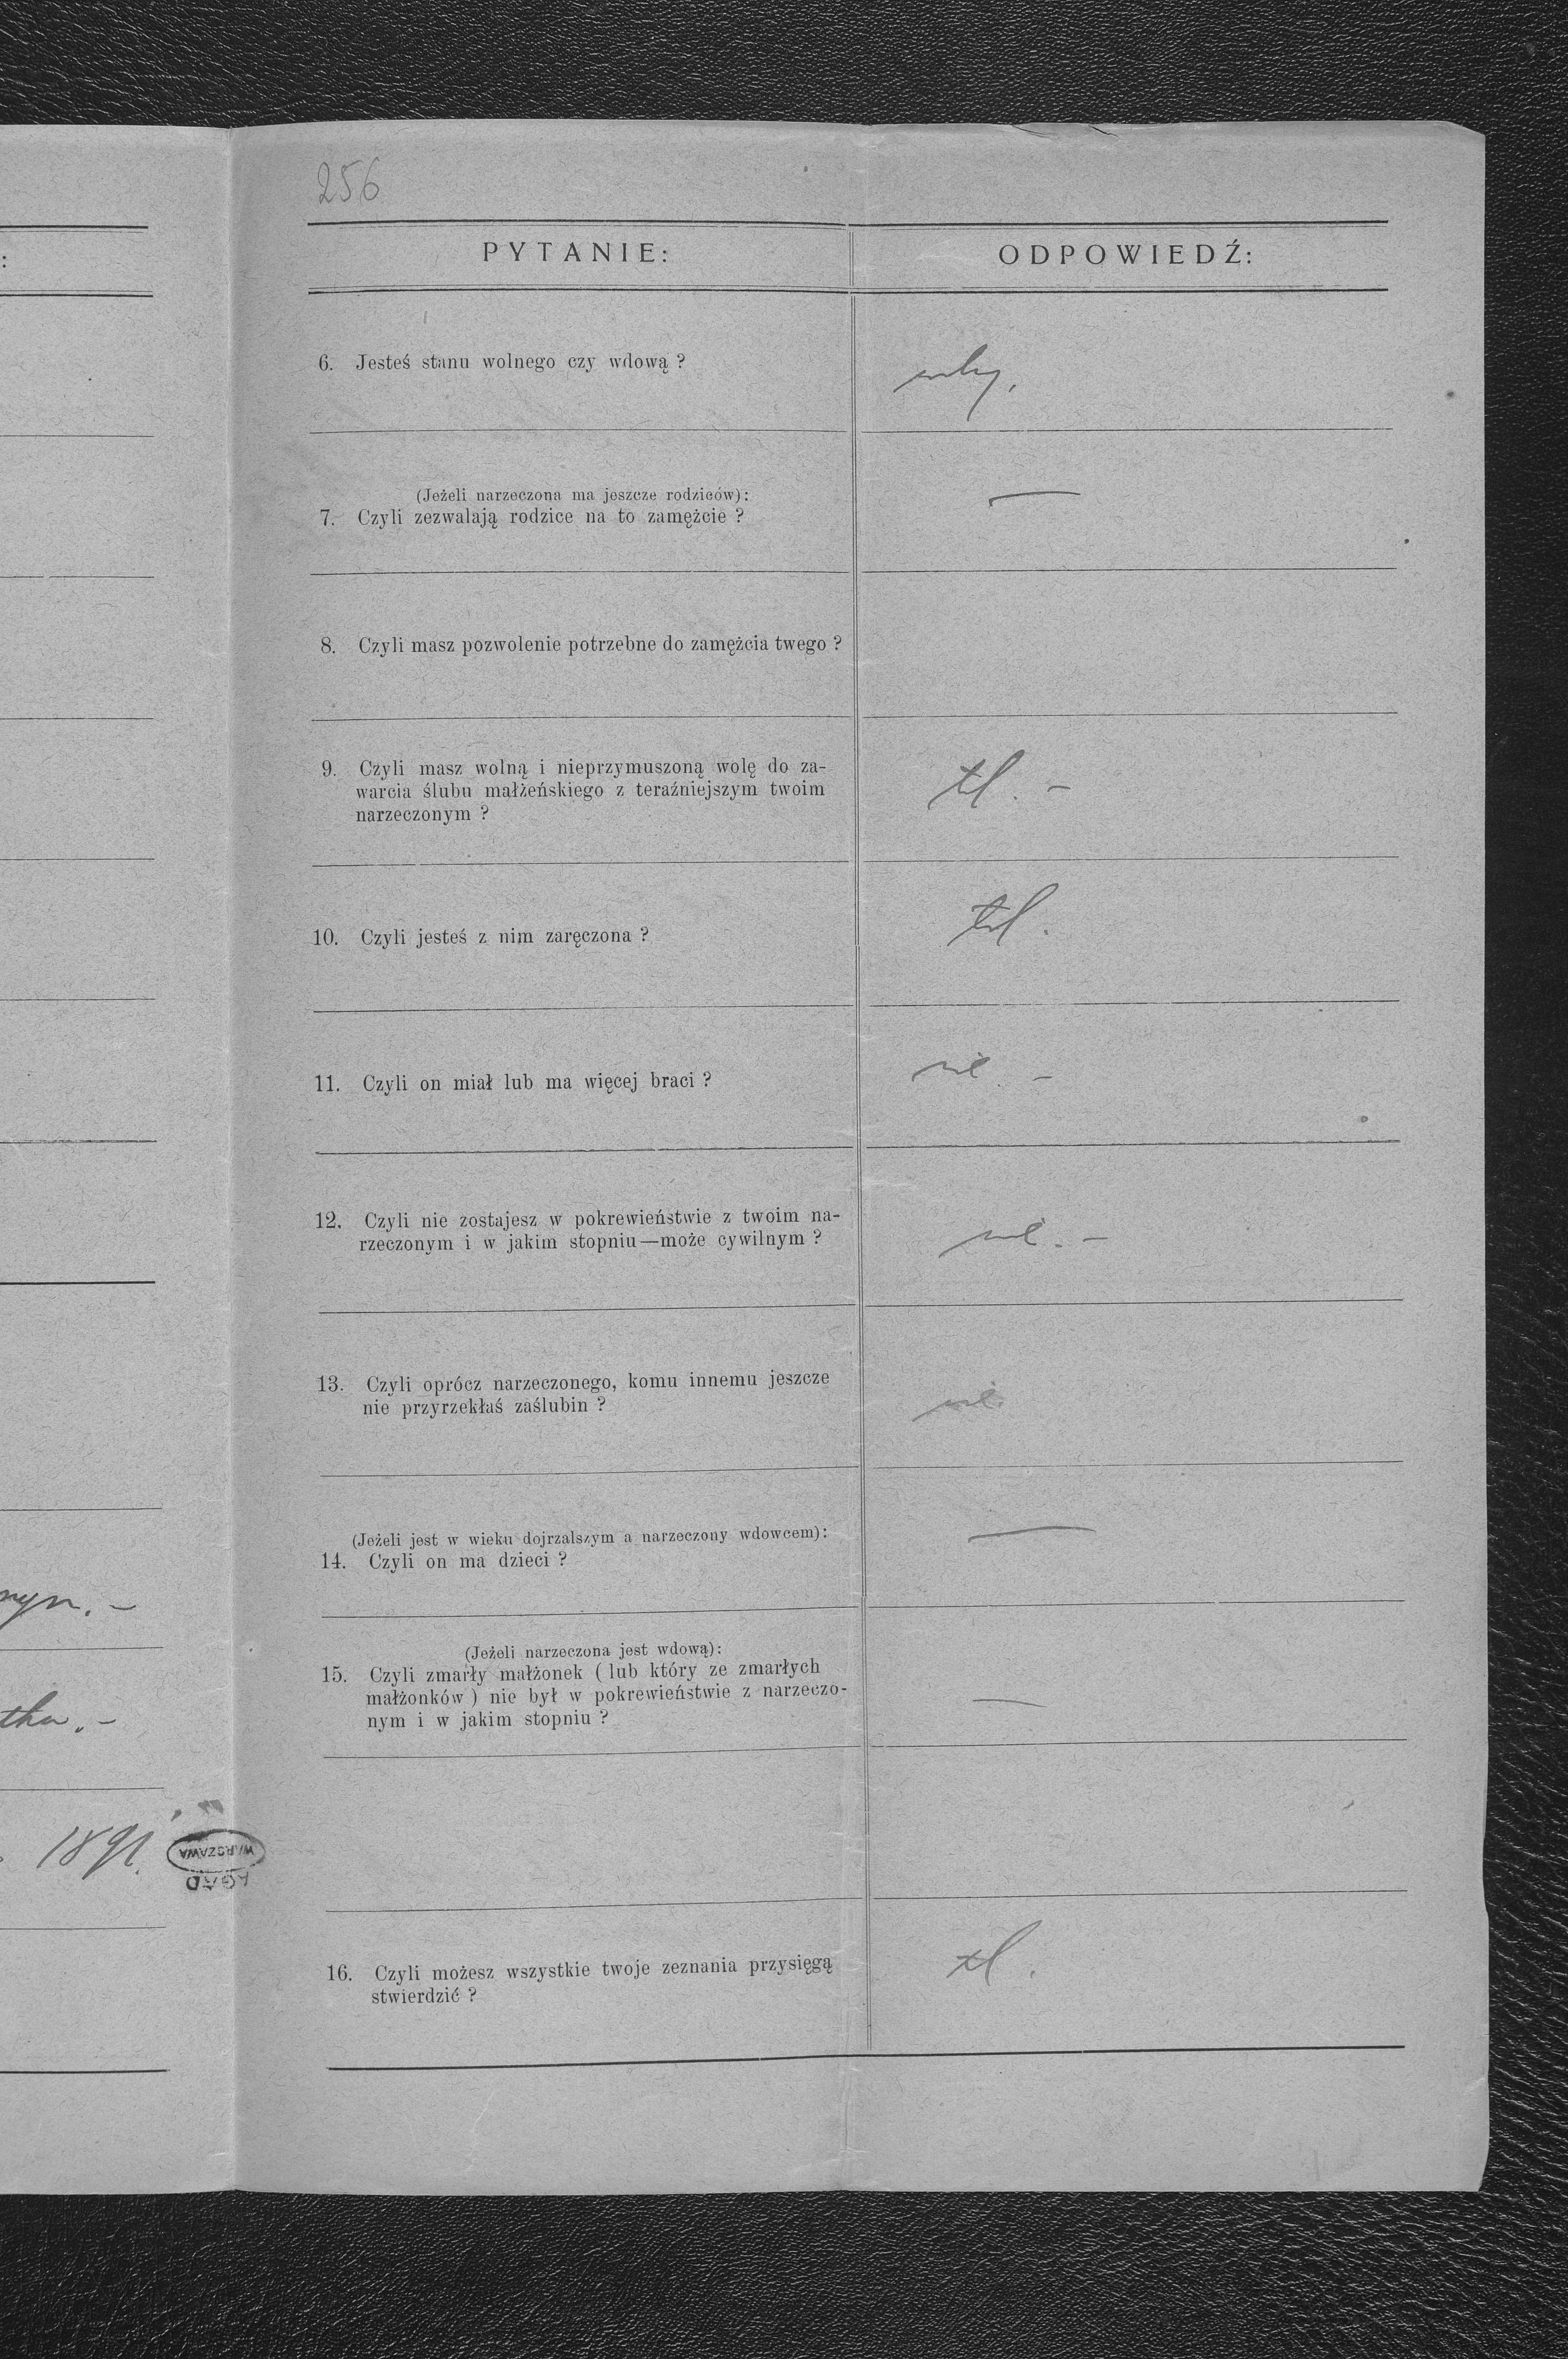 256
PYTANIE:
ODPOWIEDŹ:
6. Jesteś stanu wolnego czy wdową ?
(Jeżeli narzeczona ma jeszcze rodziców):
7. Czyli zezwalają rodzice na to zamężcie ?
8. Czyli masz pozwolenie potrzebne do zamężcia twego ?
9. Czyli masz wolną i nieprzymuszoną wolę do za-
warcia ślubu małżeńskiego z teraźniejszym twoim
narzeczonym ?
10. Czyli jesteś z nim zaręczona ?
11. Czyli on miał lub ma więcej braci ?
nie. –
12. Czyli nie zostajesz w pokrewieństwie z twoim na-
rzeczonym i w jakim stopniu—może cywilnym ?
nie. –
13. Czyli oprócz narzeczonego, komu innemu jeszcze
nie przyrzekłaś zaślubin ?
nie.
(Jeżeli jest w wieku dojrzalszym a narzeczony wdowcem):
14. Czyli on ma dzieci ?
(Jeżeli narzeczona jest wdową):
15. Czyli zmarły małżonek ( lub który ze zmarłych
małżonków ) nie był w pokrewieństwie z narzeczo-
nym i w jakim stopniu ?
1891.
AGAD
WARSZAWA
16. Czyli możesz wszystkie twoje zeznania przysięgą
stwierdzić ?